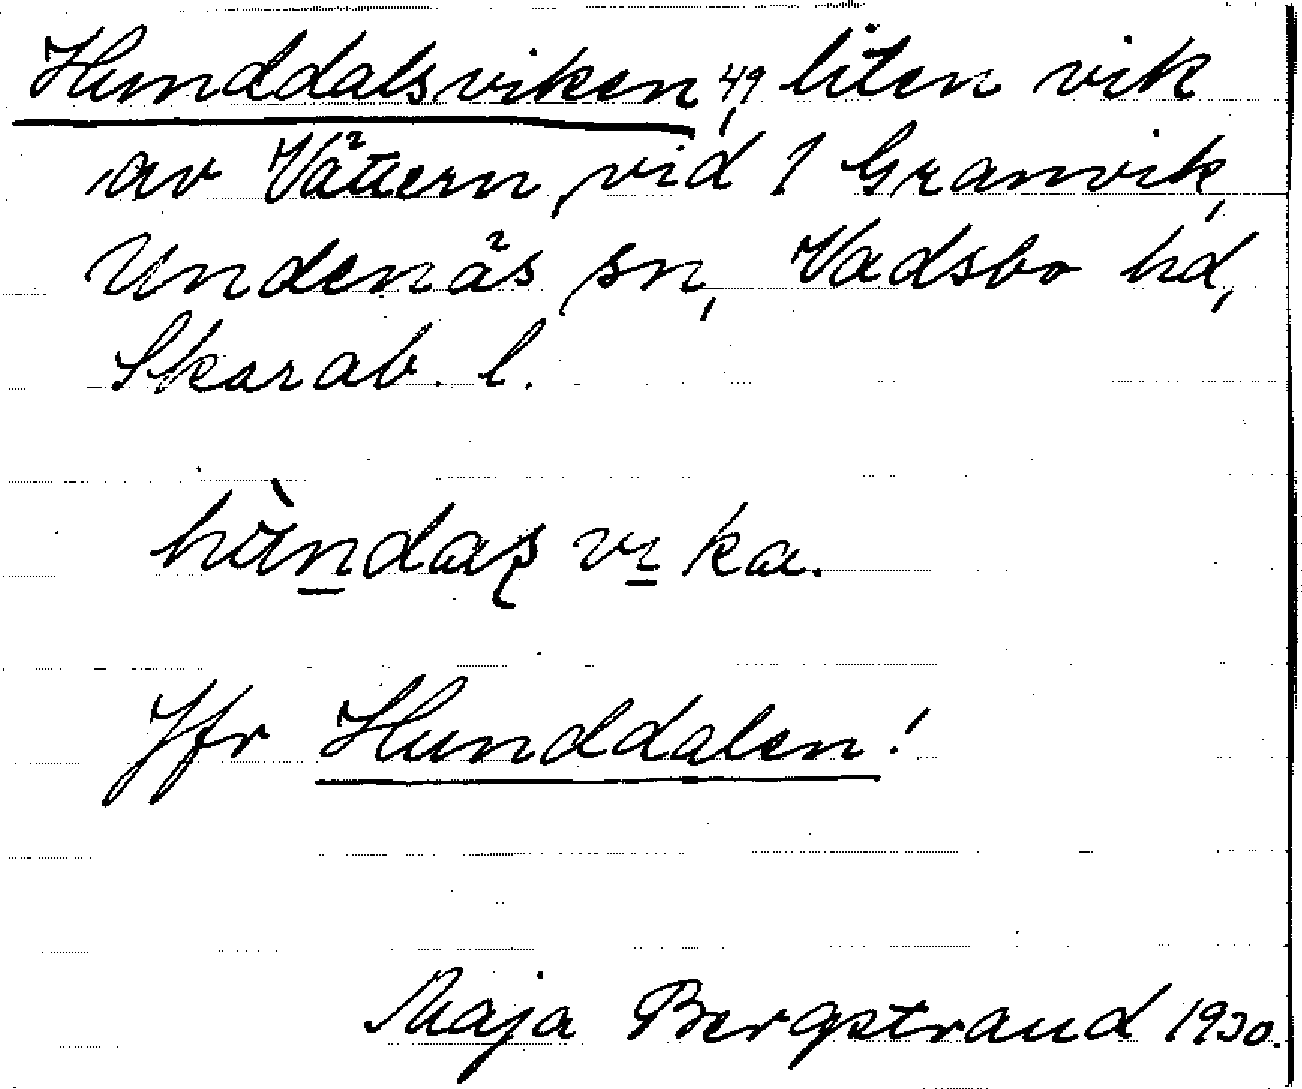 Hunddalsviken 49, liten vik
av Vättern, vid 1 Granvik,
Undenäs sn, Vadsbo hd,
Skarab. l.
hùndas vika.
Jfr Hunddalen!
Maja Bergstrand 1930.